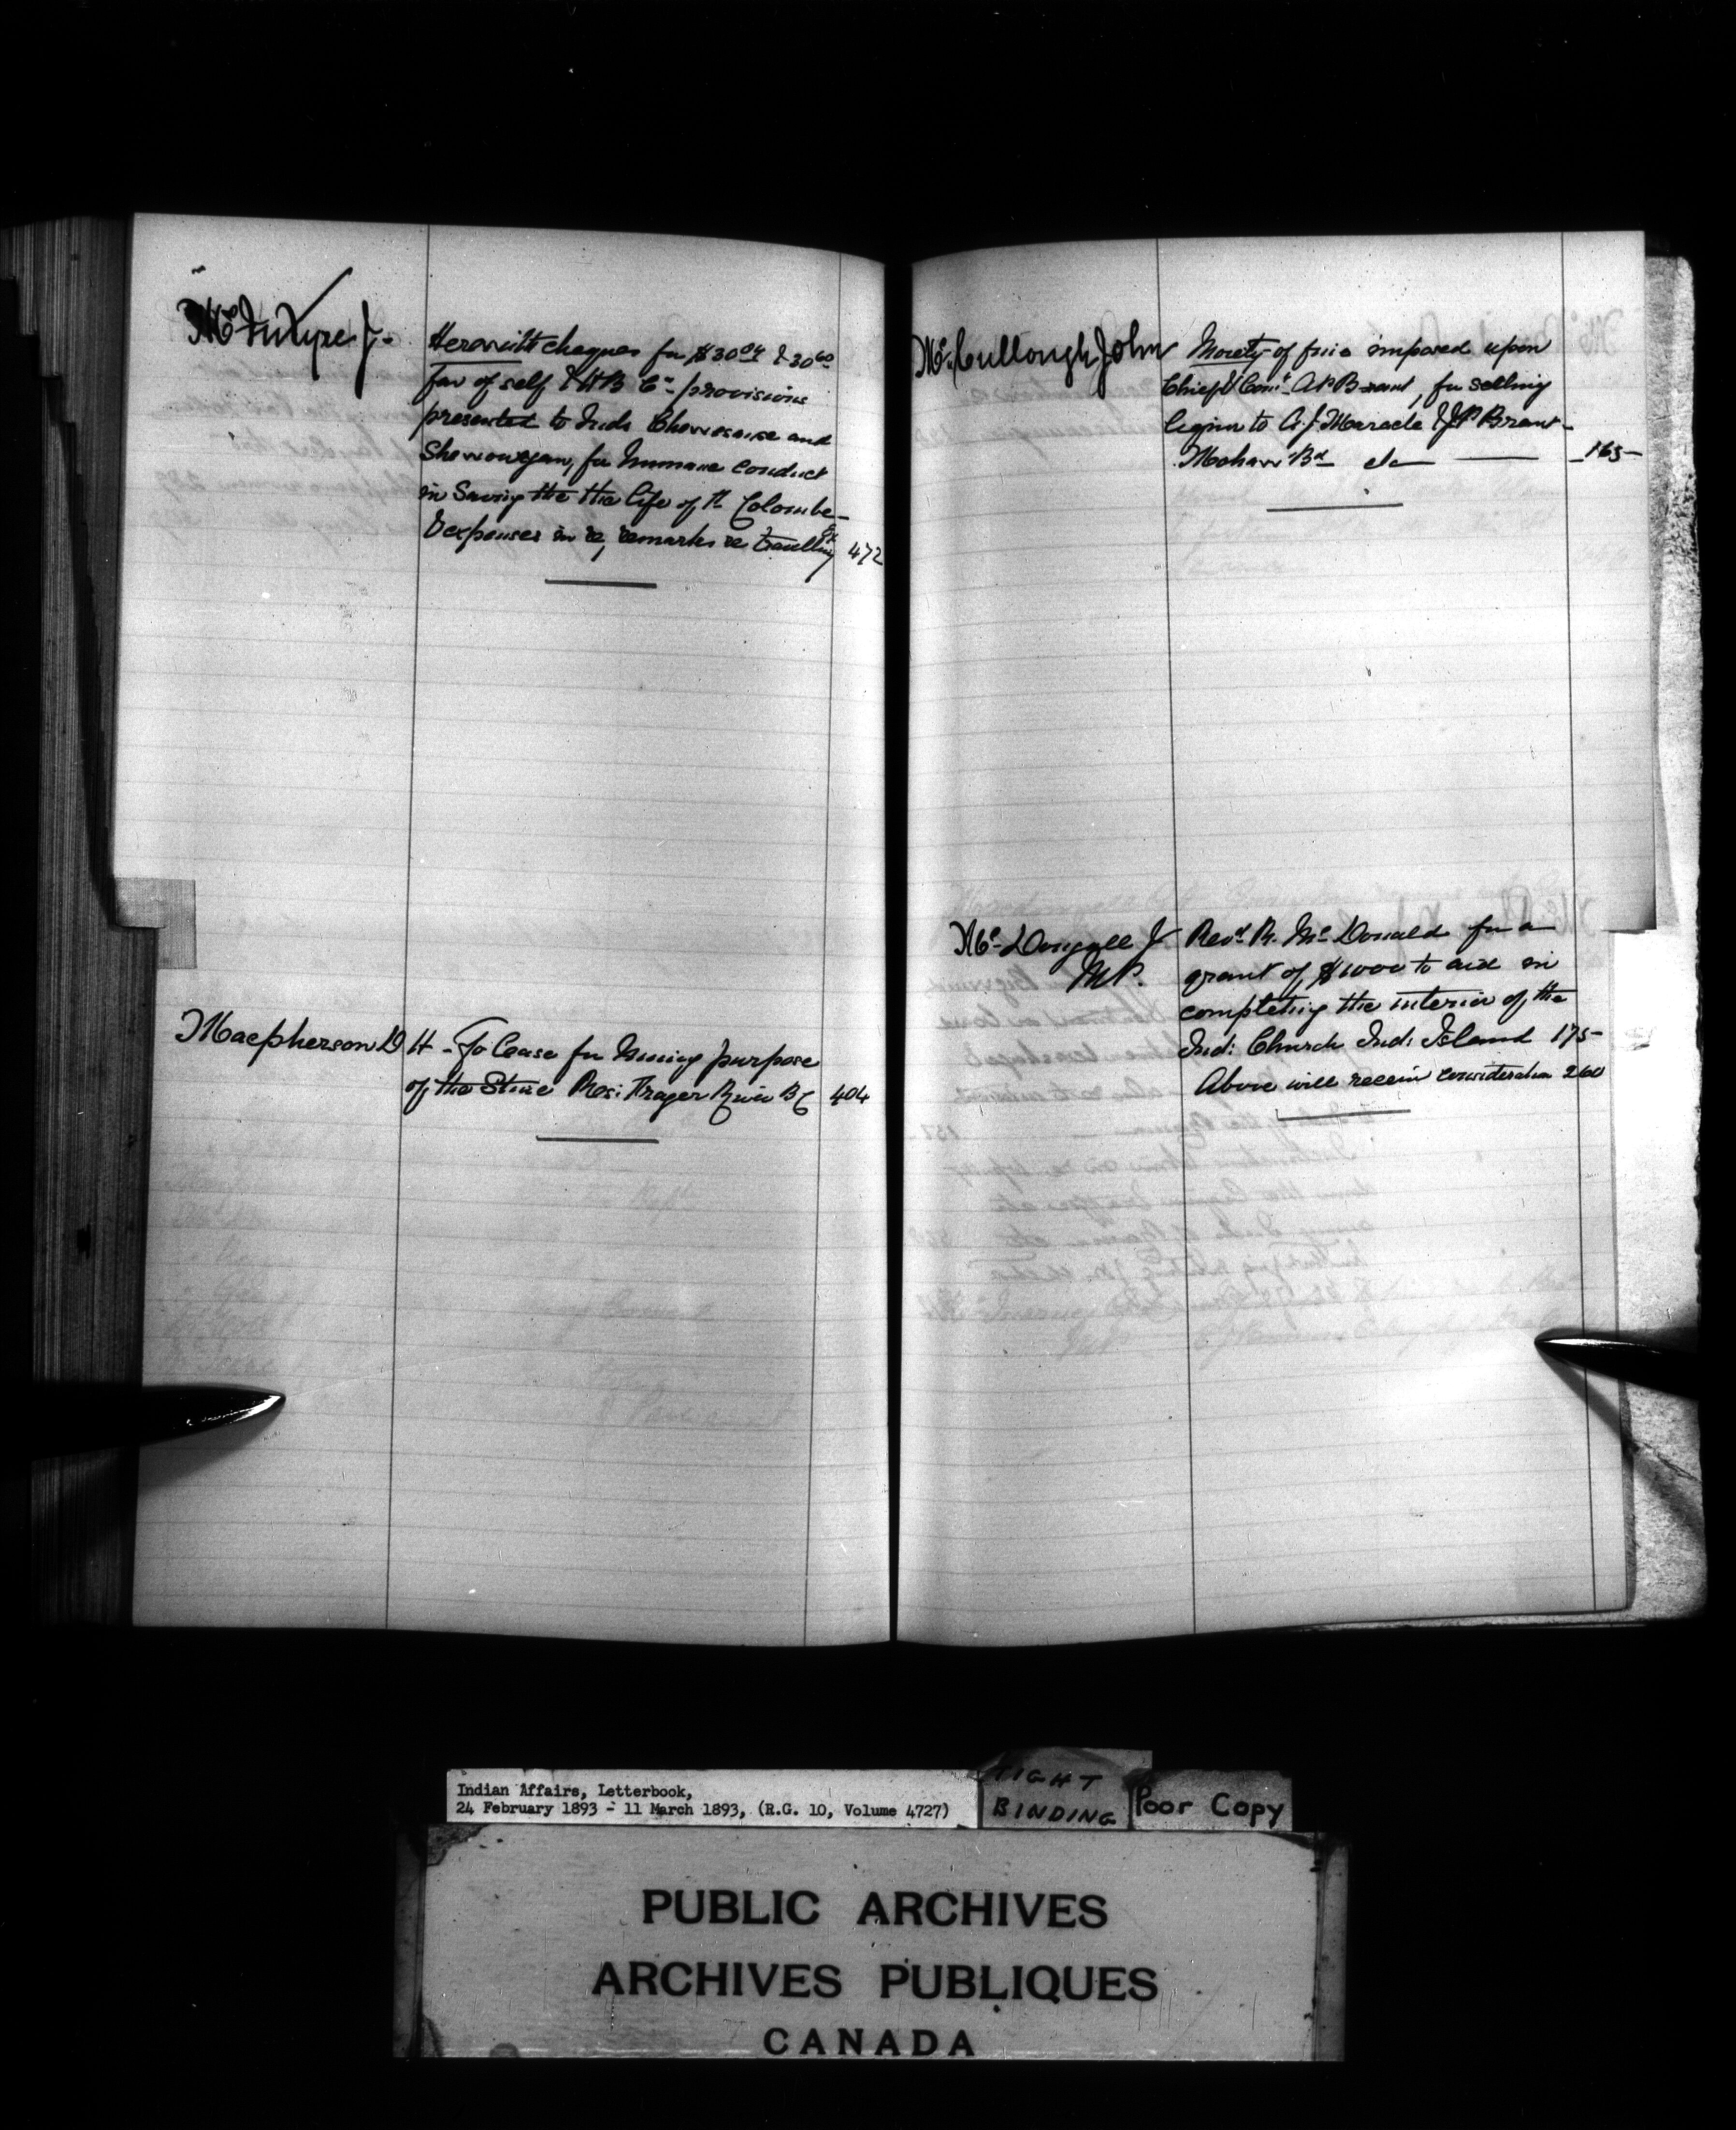 McIntyre J.
Herewith cheques for $30.04 & 30.60
fav of self & H B Co provisions
presented to Inds and
for humane conduct
in Saving the the life of Th Colombe
& expenses in re, remarks re travellg Ex 472
Macpherson D H - To lease for Mining purpose
of the Stone Res: Frazer River B C 404
McCullough John
Moiety of fine imposed upon
Chief & Coun. A P Brant, for selling
liquor to A. J. Maracle & J P Brant
Mohaw Bd etc 165
McDougall J
M P.
Revd R. McDonald for a
grant of $1000 to aid in
completing the interior of the
Ind: Church Ind: Island 175
Above will receive consideration 260
Indian Affairs, Letterbook,
24 February 1893 - 11 March 1893, (R.G. 10, Volume 4727)
TIGHT
BINDING
Poor Copy
PUBLIC ARCHIVES
ARCHIVES PUBLIQUES
CANADA